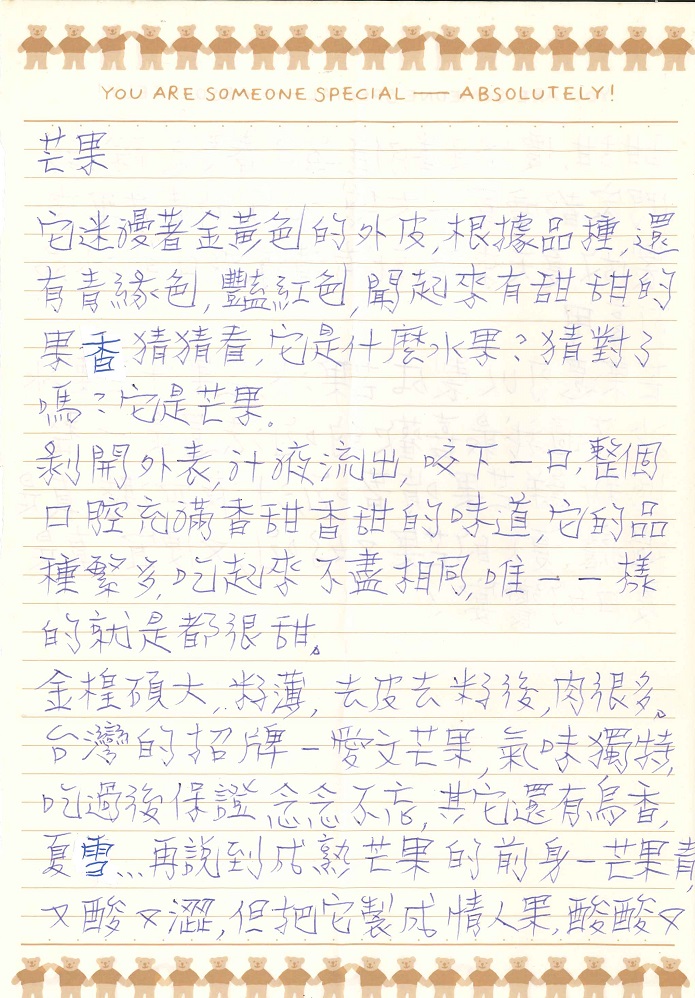 YOU ARE SOMEONE SPECIAL — ABSOLUTELY!
芒果
它迷漫著金黃色的外皮,根據品種,還
有青緣色,豔紅色,聞起來有甜甜的
果香猜猜看,它是什麼水果?猜對了
嗎?它是芒果。
剝開外表,汁液流出,咬下一口,整個
口腔充滿香甜香甜的味道,它的品
種繁多,吃起來不盡相同,唯一一樣
的就是都很甜。
金楻碩大,籽薄,去皮去籽後,肉很多。
台灣的招牌-愛文芒果,氣味獨特,
吃過後保證念念不忘,其它還有烏香,
夏雪...再說到成熟芒果的前身-芒果青
又酸又澀,但把它製成情人果,酸酸又